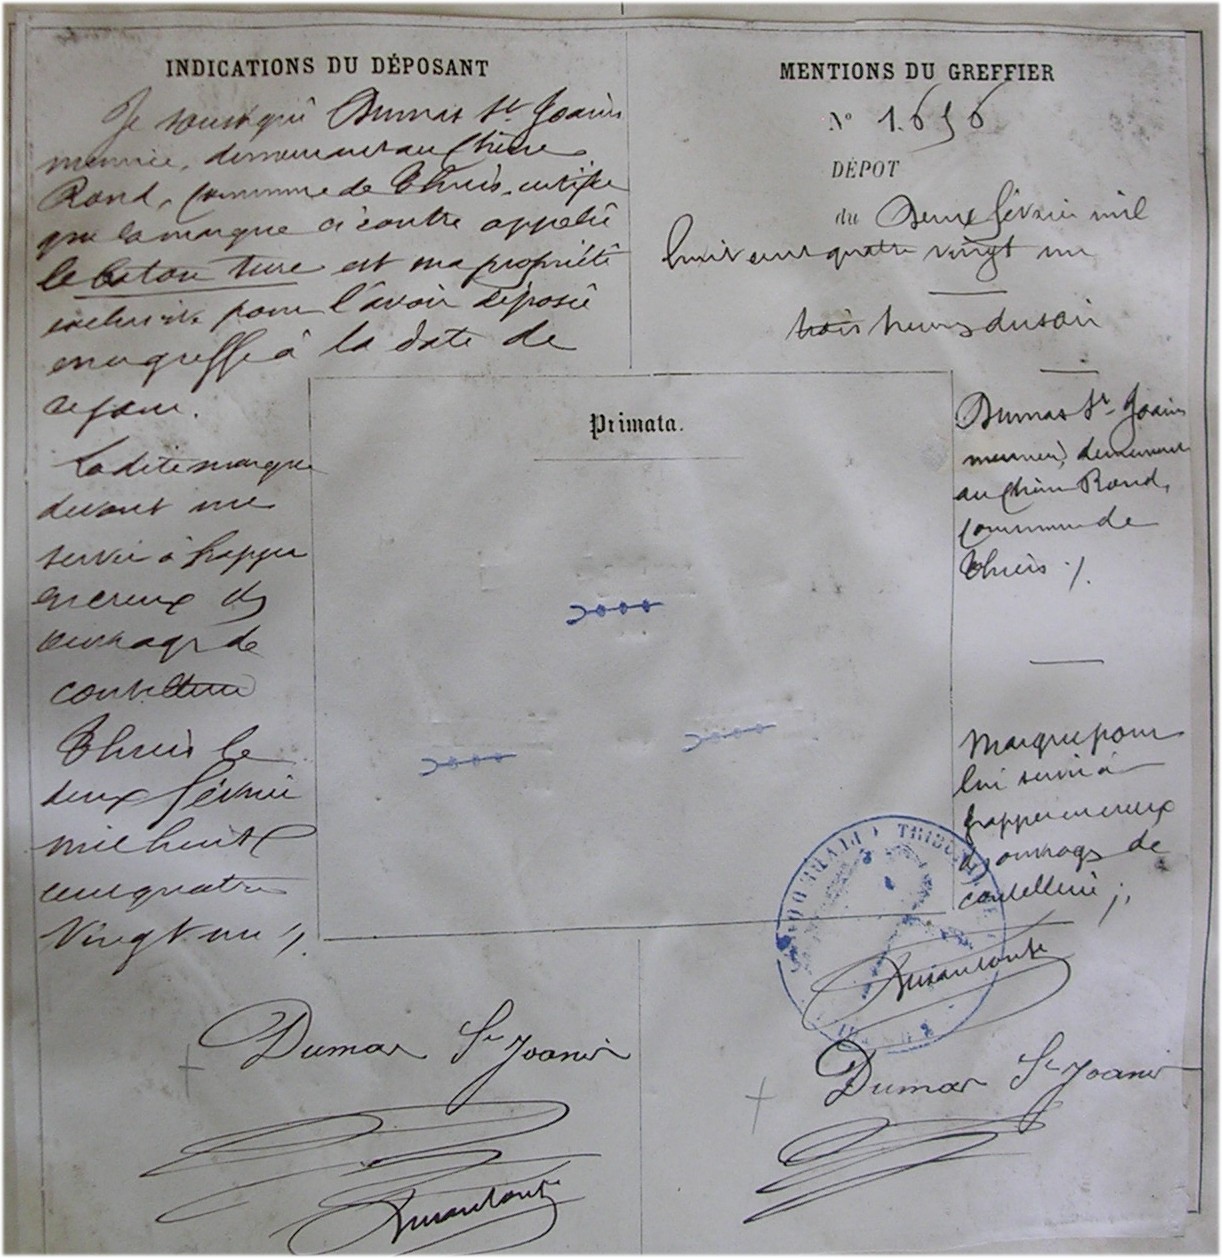 INDICATIONS DU DÉPOSANT
Je soussigné Dumas St Joanis
meunier, demeurant au Chêne
Rond, commune de Thiers, certifie
que la marque ci contre appelée
le baton turc est ma propriété
exclusive pour l'avoir déposée
au greffe à la date de
ce jour.
La dite marque
devant me
servir à frapper
en creux des
ouvrages de
coutellerie
Thiers le
deux février
mil huit
cent quatre
vingt un
Dumas St Joanis
MENTIONS DU GREFFIER
No 1.656
DÉPOT
du Deux février mil
huit cent quatre vingt un
trois heures du soir
Primata.
Dumas St Joanis
meunier, demeurant
au Chêne Rond,
commune de
Thiers
Marque pour
lui servir à
frapper en creux
des ouvrages de
coutellerie
TRIBUNAL
Dumas St Joanis